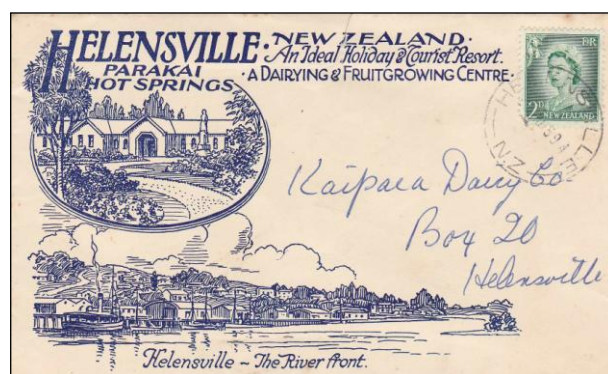 HELENSVILLE · NEW ZEALAND ·
An Ideal Holiday & Tourist Resort.
PARAKAI
· A DAIRYING & FRUITGROWING CENTRE ·
HOT SPRINGS
2D
NEW ZEALAND
HELENSVILLE
NZ
Kaipara Dairy Co
Box 20
Helensville
Helensville ~ The River front.